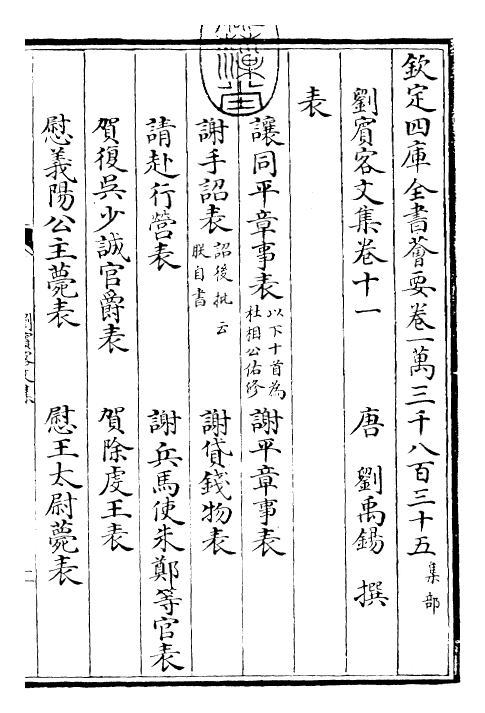 欽定四庫全書薈要卷一萬三千八百三十五 集部
劉賓客文集卷十一 唐 劉禹錫 撰
表
讓同平章事表 以下十首為杜相公佑修 謝平章事表
謝手詔表 詔後批云朕自書 謝貸錢物表
請赴行營表 謝兵馬使朱鄭等官表
賀復吳少誠官爵表 賀除虔王表
慰義陽公主薨表 慰王太尉薨表